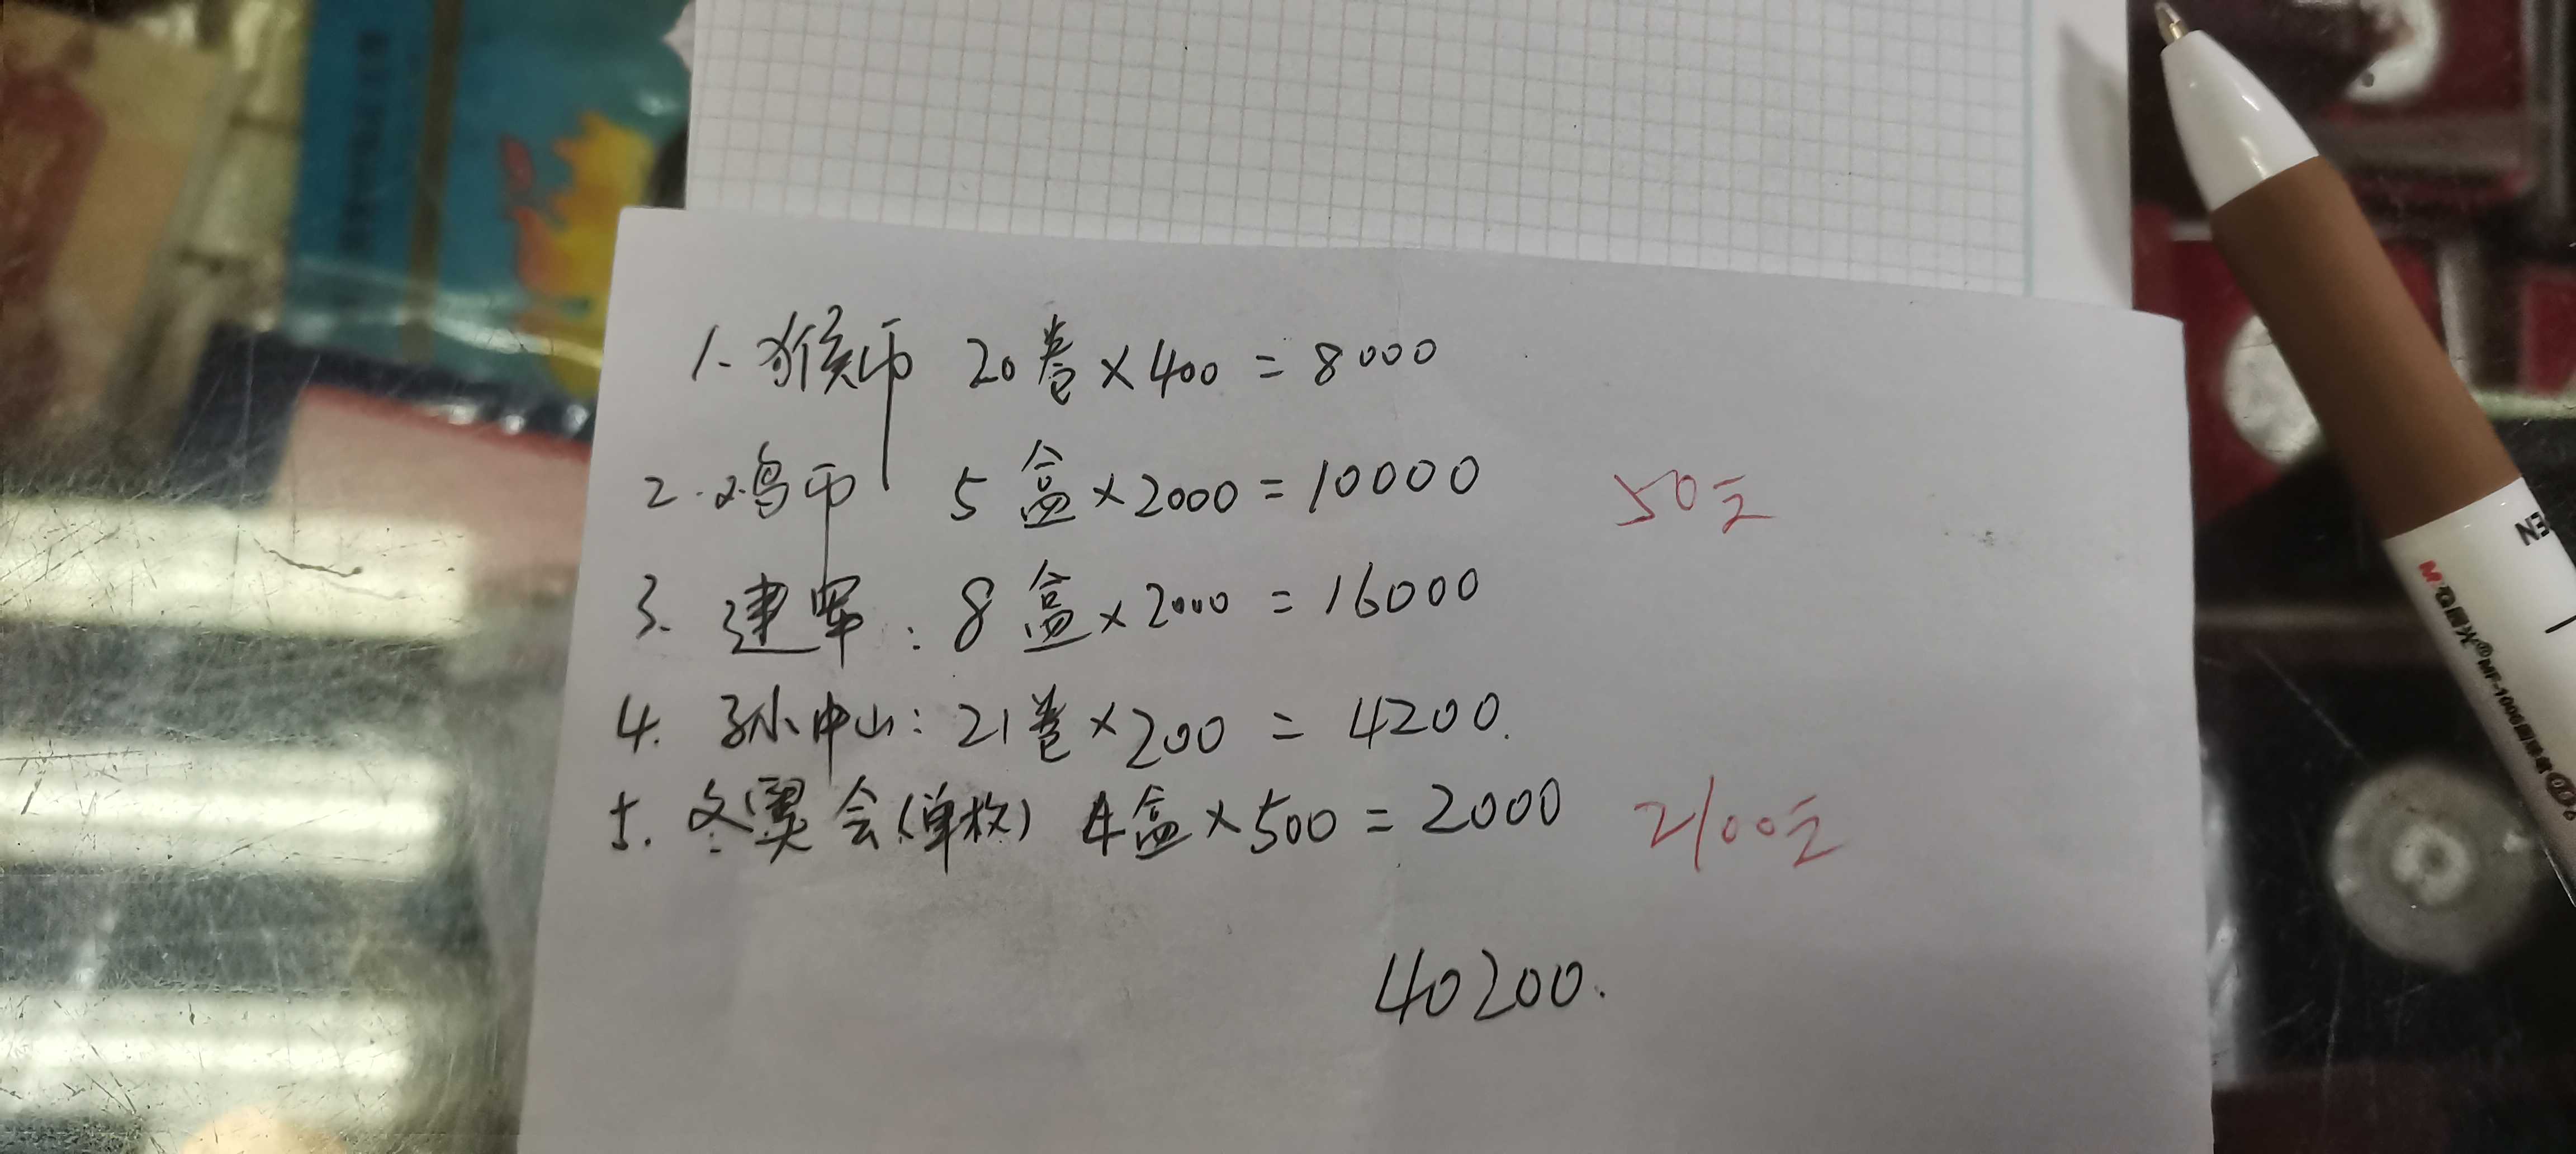 1. 猴币 20卷×400=8000
2. 鸡币 5盒×2000=10000 50元
3. 建军: 8盒×2000=16000
4. 孙中山: 21卷×200=4200.
5. 冬奥会(单枚) 4盒×500=2000 2100元
40200.
M&G晨光® MF-1006
EN